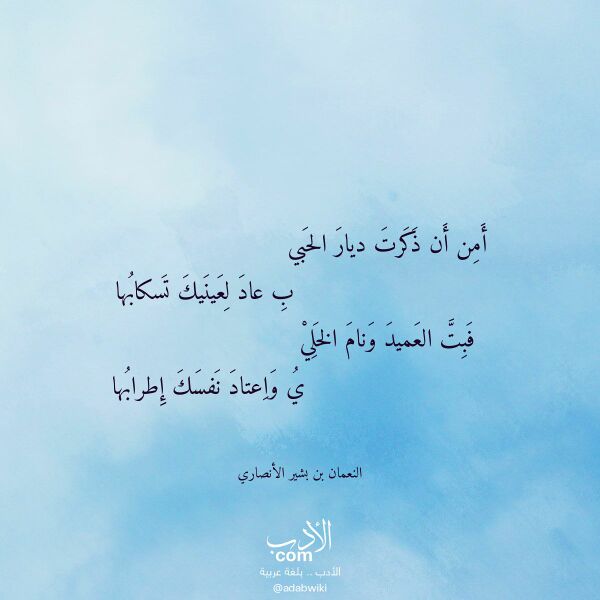 أَمِن أَن ذَكَرتَ ديارَ الحَبي
بِ عادَ لِعَينَيكَ تَسكابُها
فَبِتَّ العَميدَ وَنامَ الخَلِيْ
يُ وَاِعتادَ نَفسَكَ إِطرابُها
النعمان بن بشير الأنصاري
الأدب
com
الأدب .. بلغة عربية
@adabwiki